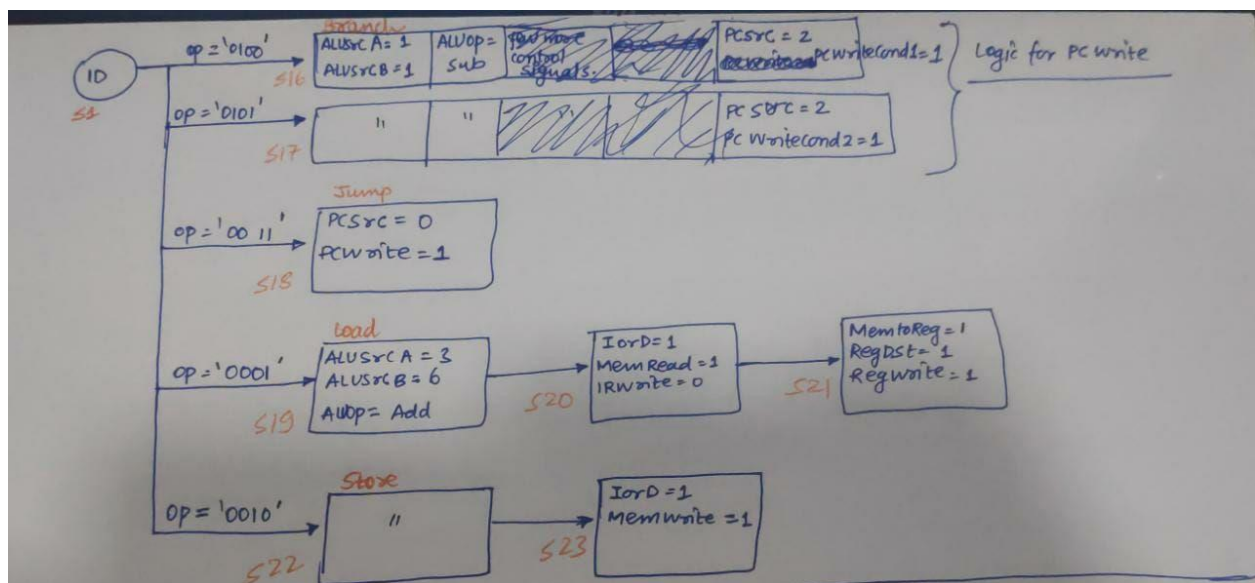 Branch
ID
S1
op = '0100'
S16
ALUSrcA = 1
ALUSrcB = 1
ALUOp =
Sub
few more
control
signals.
PCSrc = 2
PCWriteCond1 = 1
Logic for PC write
op = '0101'
S17
"
"
PCSrc = 2
PCWritecond2 = 1
Jump
op = '0011'
S18
PCSrc = 0
PCWrite = 1
Load
op = '0001'
S19
ALUSrcA = 3
ALUSrcB = 6
ALUOp = Add
S20
IorD = 1
MemRead = 1
IRWrite = 0
S21
MemtoReg = 1
RegDst = 1
RegWrite = 1
Store
Op = '0010'
S22
"
S23
IorD = 1
MemWrite = 1